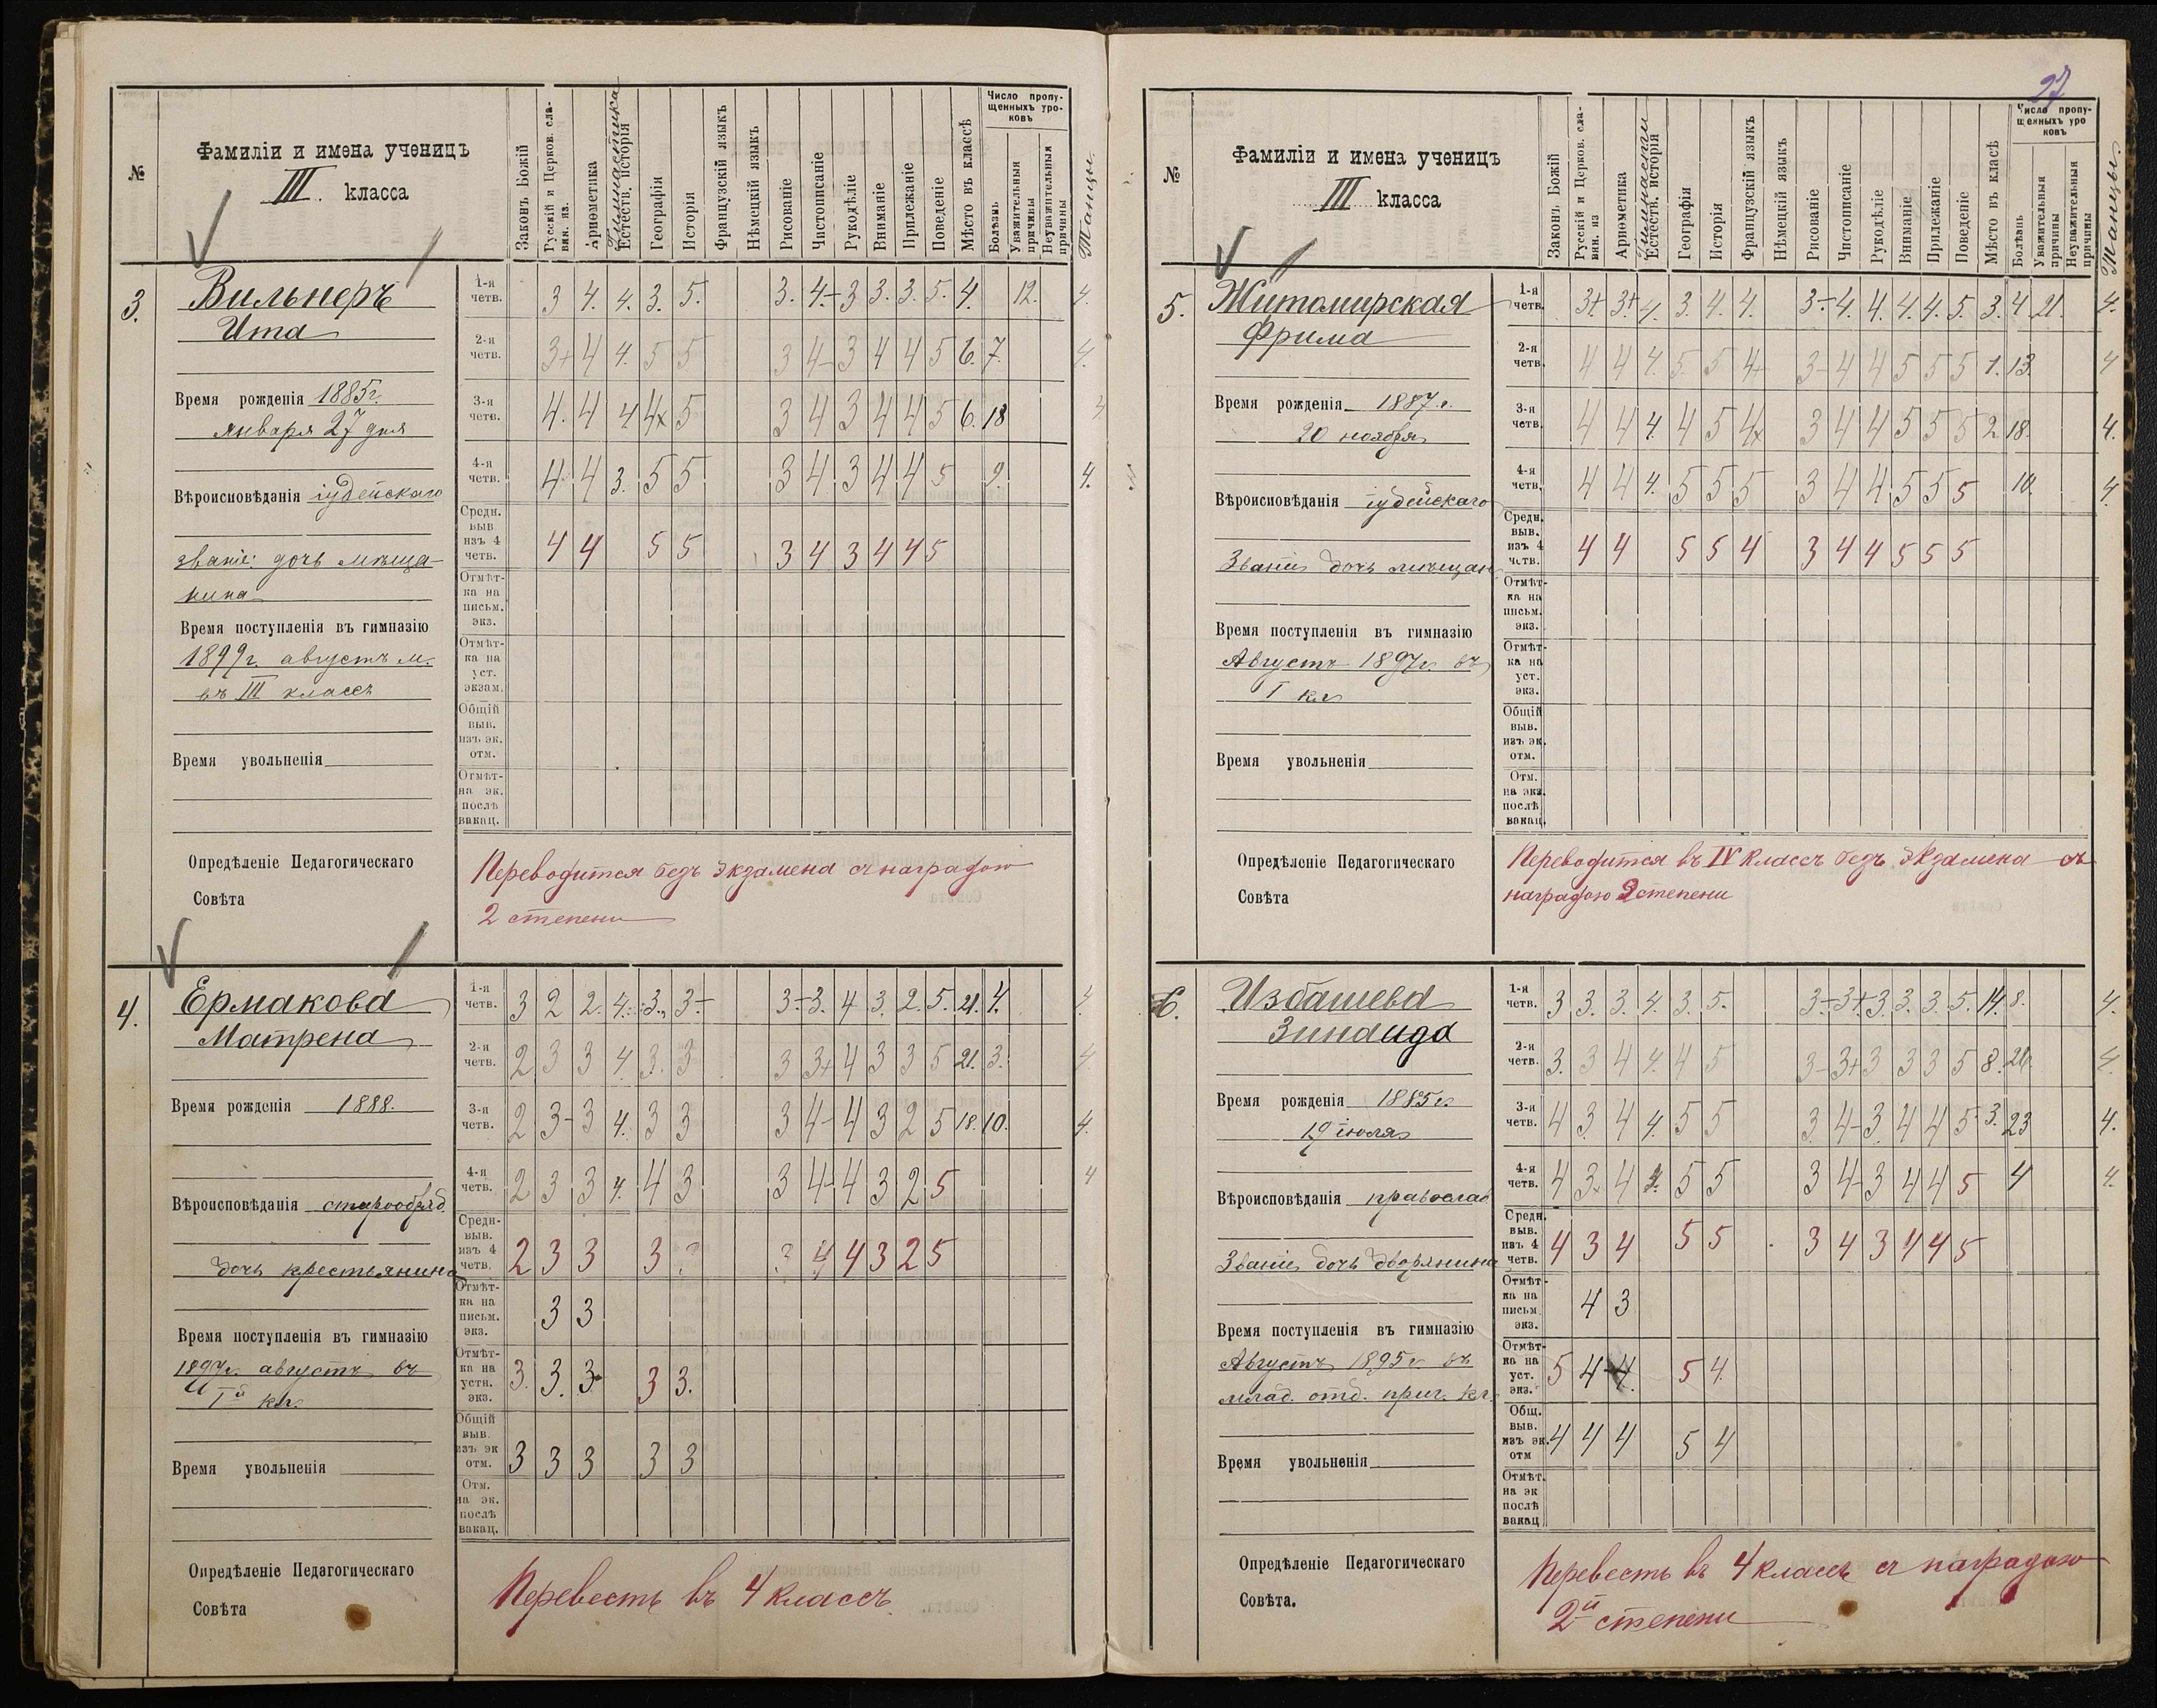 №
Фамиліи и имена ученицъ
III класса
Законъ Божій
Русскій и Церков. сла-
вян. яз.
Ариѳметика
Гимнастика
Естеств. исторія
Географія
Исторія
Французскій языкъ
Нѣмецкій языкъ
Рисованіе
Чистописаніе
Рукодѣліе
Вниманіе
Прилежаніе
Поведеніе
Мѣсто въ классѣ
Число пропу-
щенныхъ уро-
ковъ
Болѣзнь
Уважительныя
причины
Неуважительныя
причины
Танцы.
3.
Вильнеръ
Ита
Время рожденія 1885г.
января 27 дня
Вѣроисповѣданія іудейскаго
званіе: дочь мѣща-
нина
Время поступленія въ гимназію
1899г. августъ м.
въ III классъ
Время увольненія
1-я четв. 3 4. 4. 3. 5. 3. 4- 3 3. 3. 5. 4. 12. 4.
2-я четв. 3+ 4 4. 5 5 3 4- 3 4 4 5 6. 7. 4.
3-я четв. 4. 4 4 4x 5 3 4 3 4 4 5 6. 18 4
4-я четв. 4 4 3. 5 5 3 4 3 4 4 5 2. 4.
Средн. выв. изъ 4 четв. 4 4 5 5 3 4 3 4 4 5
Отмѣт-
ка на
письм.
экз.
Отмѣт-
ка на
уст.
экзам.
Общій
выв.
изъ эк.
отм.
Отмѣт-
на эк.
послѣ
вакац.
Опредѣленіе Педагогическаго
Совѣта
Переводится безъ экзамена съ наградою
2 степени
4.
Ермакова
Матрена
Время рожденія 1888.
Вѣроисповѣданія старообряд.
дочь крестьянина
Время поступленія въ гимназію
1897г. августъ въ
Iй кл.
Время увольненія
1-я четв. 3 2 2. 4. 3. 3- 3- 3. 4 3. 2. 5. 21. 4. 4.
2-я четв. 2 3 3 4. 3. 3 3 3+ 4 3 3 5 21. 3. 4
3-я четв. 2 3- 3 4. 3 3 3 4- 4 3 2 5 18. 10. 4.
4-я четв. 2 3 3 4. 4 3 3 4- 4 3 2 5 4
Средн- выв. изъ 4 четв. 2 3 3 3 3 4 4 3 2 5
Отмѣт- ка на письм. экз. 3 3
Отмѣт- ка на устн. экз. 3. 3. 3 3 3.
Общій выв. изъ эк отм. 3 3 3 3 3
Отм.
на эк.
послѣ
вакац.
Опредѣленіе Педагогическаго
Совѣта
Перевесть въ 4 классъ
27
№
Фамиліи и имена ученицъ
III класса
Законъ Божій
Русскій и Церков. сла-
вян. яз
Ариѳметика
Гимнастика
Естеств. исторія
Географія
Исторія
Французскій языкъ
Нѣмецкій языкъ
Рисованіе
Чистописаніе
Рукодѣліе
Вниманіе
Прилежаніе
Поведеніе
Мѣсто въ класѣ
Число пропу-
щенныхъ уро
ковъ
Болѣзнь
Уважительныя
причины
Неуважительныя
причины
Танцы.
5.
Житомирская
Фрима
Время рожденія 1887 г.
20 ноября
Вѣроисповѣданія іудейскаго
Званіе дочь мѣщан
Время поступленія въ гимназію
Августъ 1897г. въ
I кл
Время увольненія
1-я четв. 3+ 3+ 4. 3. 4. 4. 3- 4. 4. 4. 4. 5. 3. 4 21. 4.
2-я четв. 4 4 4. 5 5 4+ 3- 4 4 5 5 5 1. 13. 4
3-я четв. 4 4 4. 4 5 4x 3 4 4 5 5 5 2 18. 4.
4-я четв. 4 4 4. 5 5 5 3 4 4 5 5 5 10. 4.
Средн. выв. изъ 4 четв. 4 4 5 5 4 3 4 4 5 5 5
Отмѣт-
ка на
письм.
экз.
Отмѣт-
ка на
уст.
экз.
Общій
выв.
изъ эк.
отм.
Отм.
на экз.
послѣ
вакац.
Опредѣленіе Педагогическаго
Совѣта
Переводится въ IV классъ безъ экзамена съ
наградою 2 степени
6.
Избашева
Зинаида
Время рожденія 1885г.
19 іюля
Вѣроисповѣданія православ
Званіе дочь дворянина
Время поступленія въ гимназію
Августъ 1895г въ
млад. отд. приг. кл.
Время увольненія
1-я четв. 3 3. 3. 4. 3. 5. 3- 3+ 3. 3. 3. 5. 14. 8. 4.
2-я четв. 3. 3 4 4. 4 5 3- 3+ 3 3 3 5 8. 26. 4.
3-я четв. 4 3 4 4. 5 5 3 4- 3 4 4 5 3. 23 4.
4-я четв. 4 3 4 5 5 3 4- 3 4 4 5 4 4.
Средн. выв. изъ 4 четв. 4 3 4 5 5 3 4 3 4 4 5
Отмѣт- ка на письм. экз. 4 3
Отмѣт- ка на уст. экз. 5 4 4. 5 4.
Общ. выв. изъ эк. отм 4 4 4 5 4
Отмѣт.
на эк
послѣ
вакац
Опредѣленіе Педагогическаго
Совѣта.
Перевесть въ 4 классъ съ наградою
2й степени